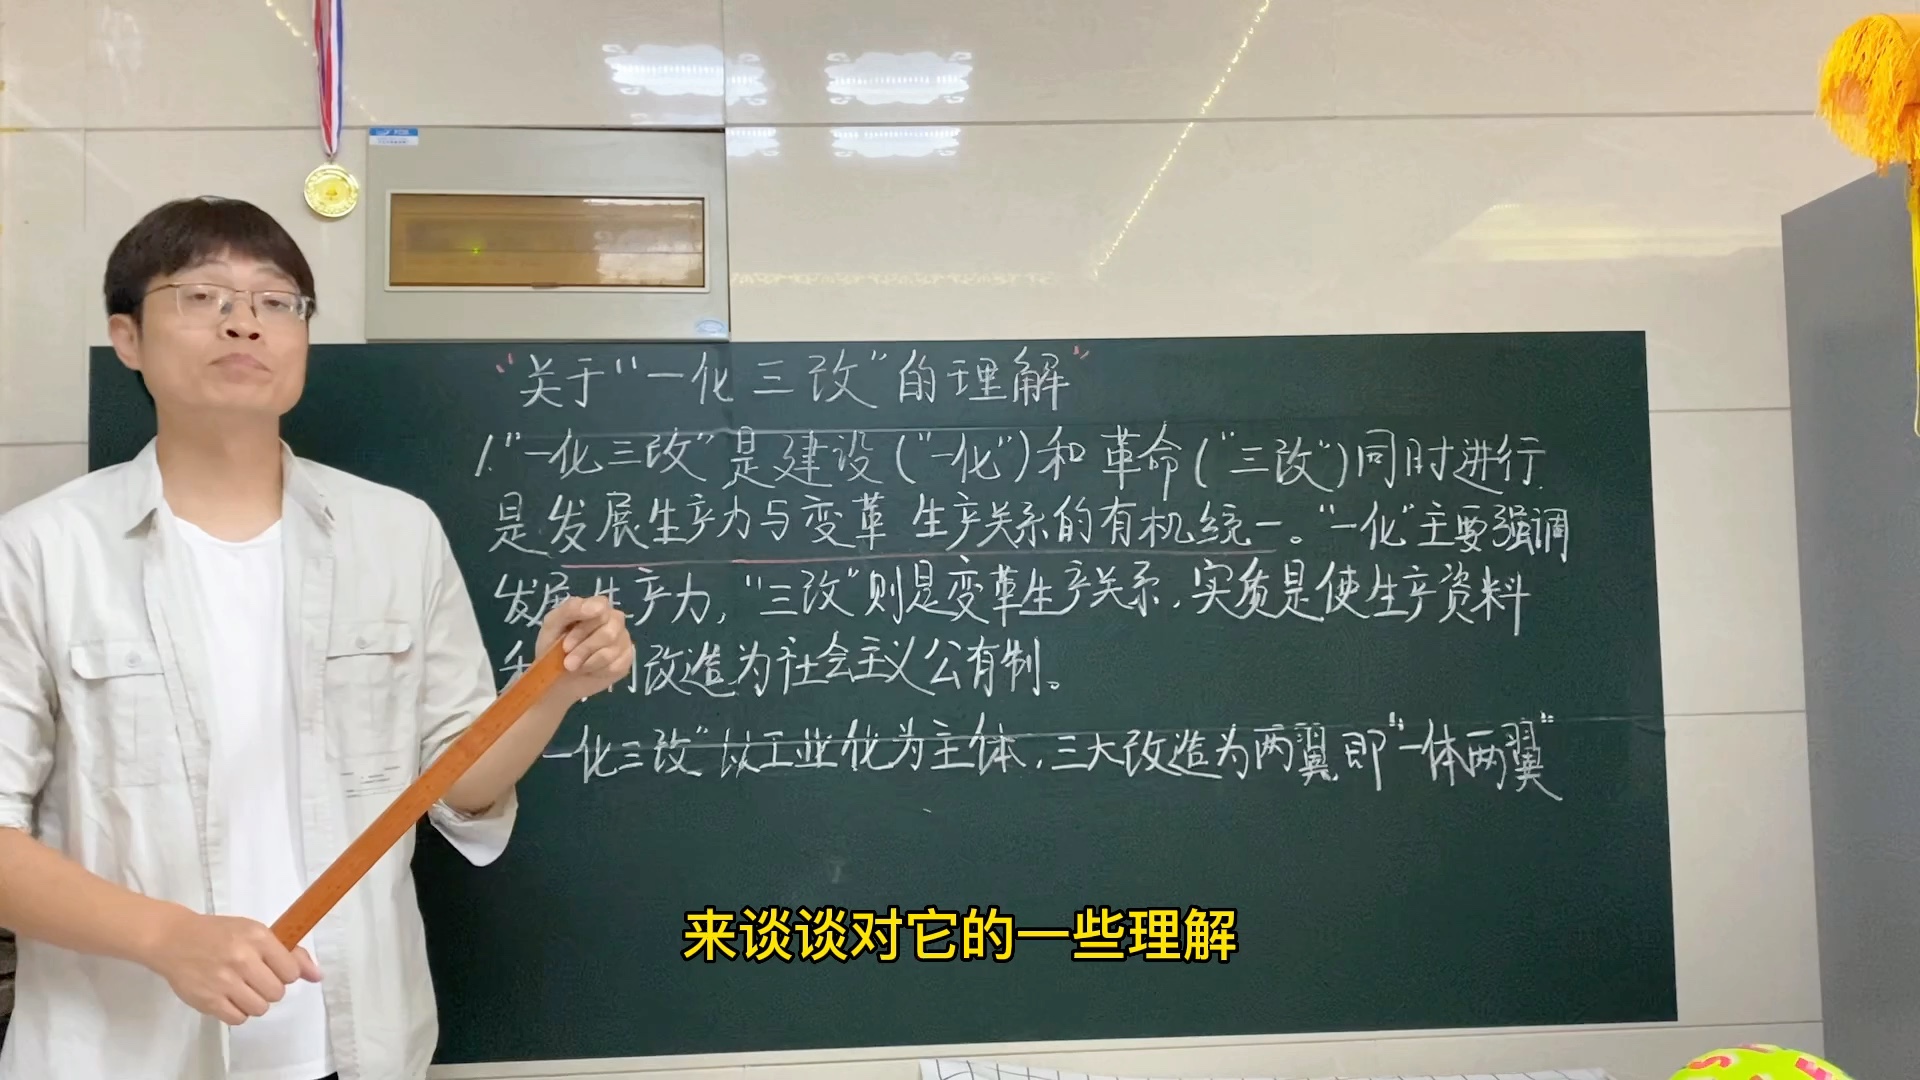 "关于"一化三改"的理解"
1."一化三改"是建设("一化")和革命("三改")同时进行
是发展生产力与变革生产关系的有机统一。"一化"主要强调
发展生产力,"三改"则是变革生产关系,实质是使生产资料
改造为社会主义公有制。
一化三改"以工业化为主体,三大改造为两翼即"一体两翼"
来谈谈对它的一些理解